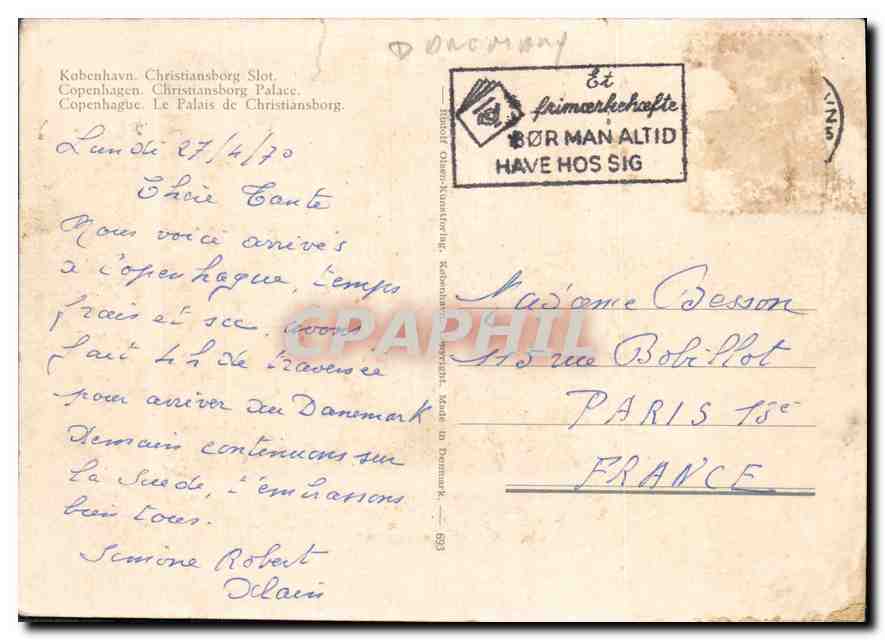 Danemark
København. Christiansborg Slot.
Copenhagen. Christiansborg Palace.
Copenhague. Le Palais de Christiansborg.
Lundi 27/4/70
Chère Tante
Nous voici arrivés
à Copenhague, temps
frais et sec, avons
fait 4h de traversée
pour arriver au Danemark
Demain continuons sur
la Suède, t'embrassons
bien tous.
Simone Robert
Alain
Rudolf Olsen-Kunstforlag, København. Copyright. Made in Denmark. — 693
Et
frimærkehæfte
BØR MAN ALTID
HAVE HOS SIG
Madame Besson
115 rue Bobillot
PARIS 13e
FRANCE
GPAPHIL